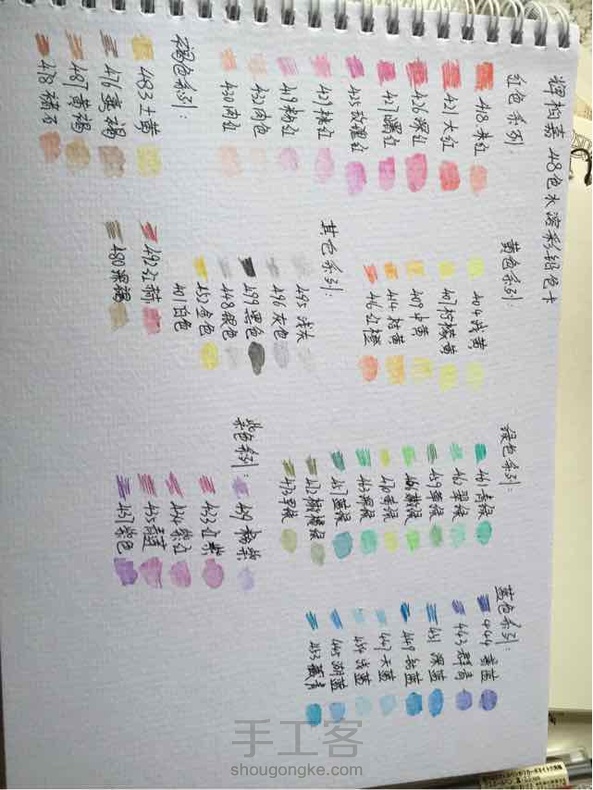 辉柏嘉 48色水溶彩铅色卡
红色系列:
418 朱红
421 大红
426 深红
427 曙红
玫瑰红
桃红
419 粉红
432 肉色
430 肉红
黄色系列:
404 浅黄
407 柠檬黄
409 中黄
414 桔黄
416 红橙
绿色系列:
461 青绿
462 翠绿
459 草绿
嫩绿
470 黄绿
463 深绿
467 蓝绿
472 橄榄绿
473
蓝色系列:
444
443 群青
451 深蓝
449 钴蓝
447 天蓝
454 浅蓝
445 湖蓝
453 藏青
其它系列:
495 浅灰
496 灰色
499 黑色
448 银色
452 金色
401 白色
紫色系列:
粉紫
433 红紫
434 紫红
435 青莲
437 紫色
褐色系列:
483 土黄
476 黄褐
487 黄褐
478 赭石
492
480 深褐
手工客
shougongke.com